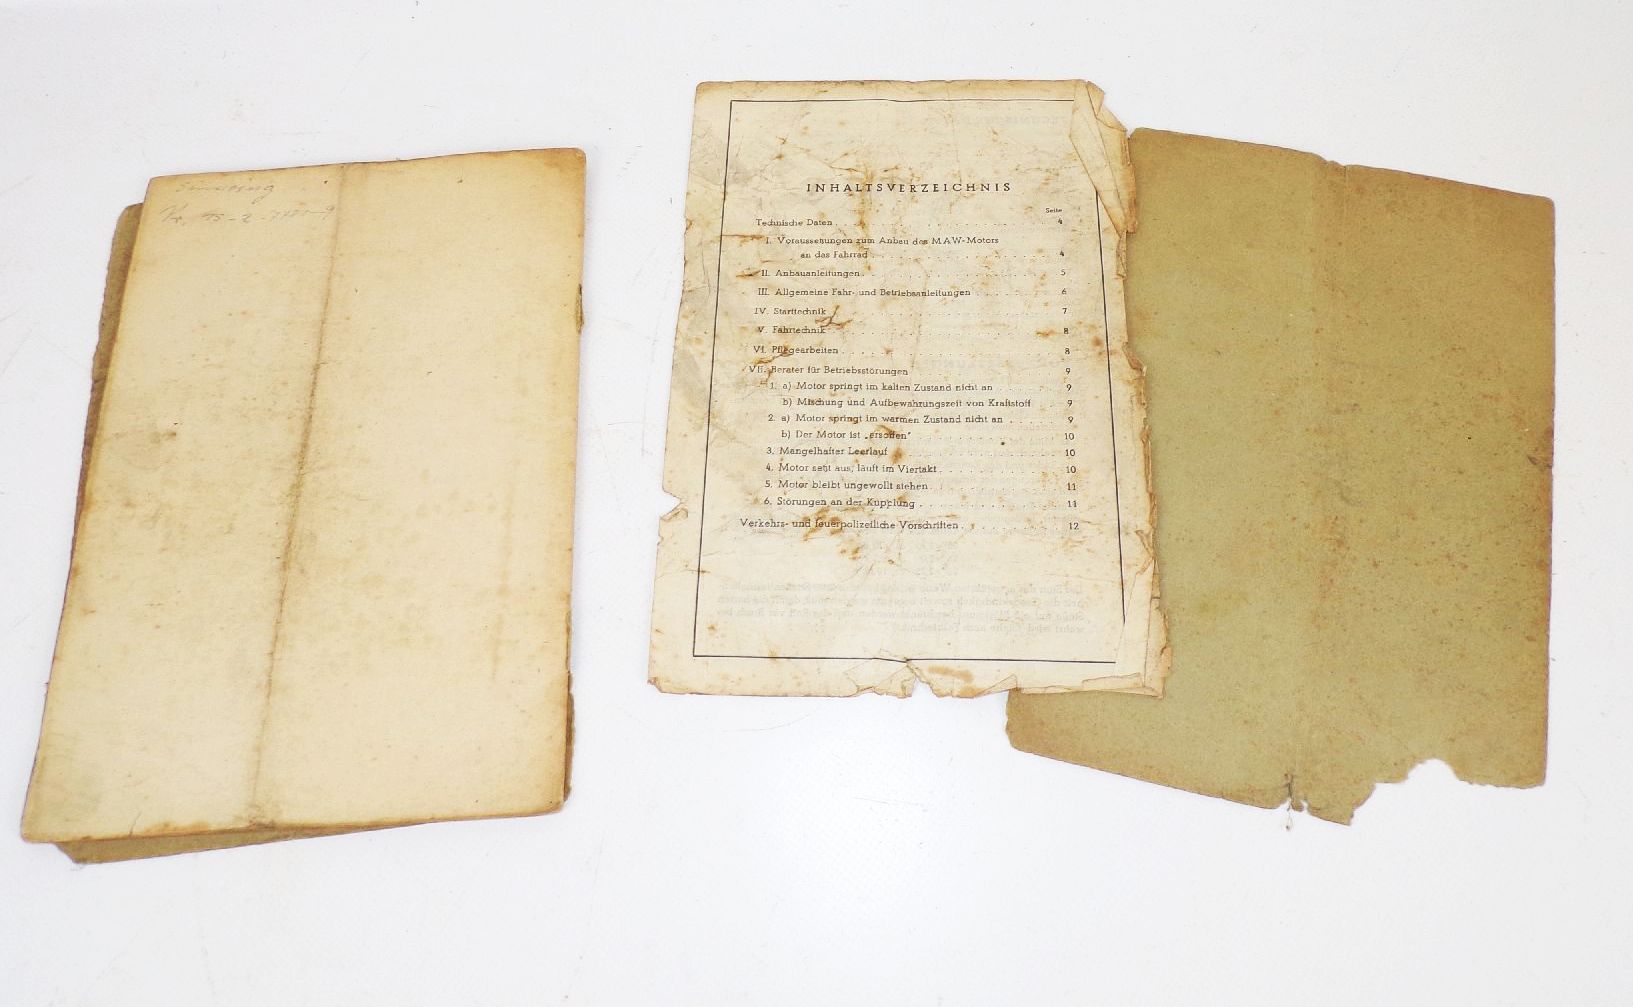 INHALTSVERZEICHNIS
Seite
Technische Daten . . . . . . . . . . . . . . . . 4
I. Voraussetzungen zum Anbau des MAW-Motors
an das Fahrrad . . . . . . . . . . . . . . . . 4
II. Anbauanleitungen . . . . . . . . . . . . . . . . 5
III. Allgemeine Fahr- und Betriebsanleitungen . . . . . . . 6
IV. Starttechnik . . . . . . . . . . . . . . . . 7
V. Fahrtechnik . . . . . . . . . . . . . . . . 8
VI. Pflegearbeiten . . . . . . . . . . . . . . . . 8
VII. Berater für Betriebsstörungen . . . . . . . . . . . 9
1. a) Motor springt im kalten Zustand nicht an . . . . . . 9
b) Mischung und Aufbewahrungszeit von Kraftstoff . . 9
2. a) Motor springt im warmen Zustand nicht an . . . . . 9
b) Der Motor ist „ersoffen" . . . . . . . . . . . . 10
3. Mangelhafter Leerlauf . . . . . . . . . . . . . 10
4. Motor setzt aus, läuft im Viertakt . . . . . . . . . . 10
5. Motor bleibt ungewollt stehen . . . . . . . . . . . 11
6. Störungen an der Kupplung . . . . . . . . . . . . 11
Verkehrs- und feuerpolizeiliche Vorschriften . . . . . . . . 12